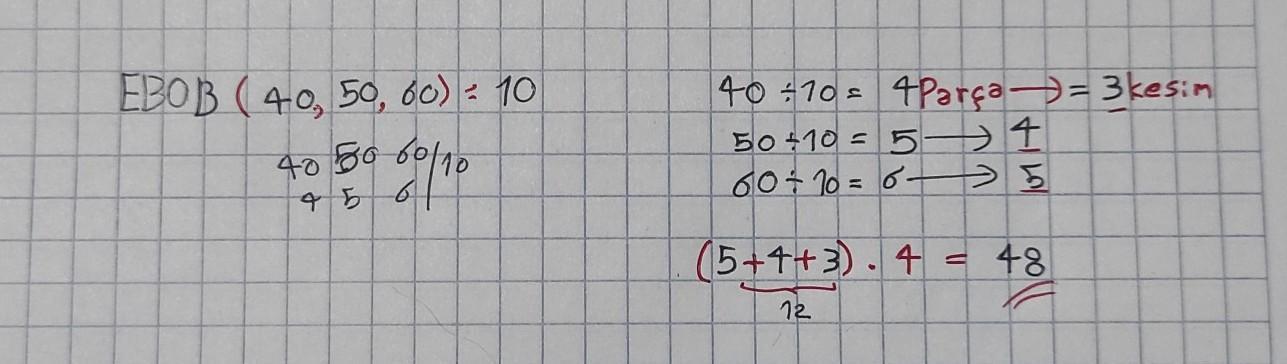 EBOB (40, 50, 60) = 10
40 50 60/10
4 5 6
40 ÷ 10 = 4 Parça → = 3 kesim
50 ÷ 10 = 5 → 4
60 ÷ 10 = 6 → 5
(5+4+3) . 4 = 48
12